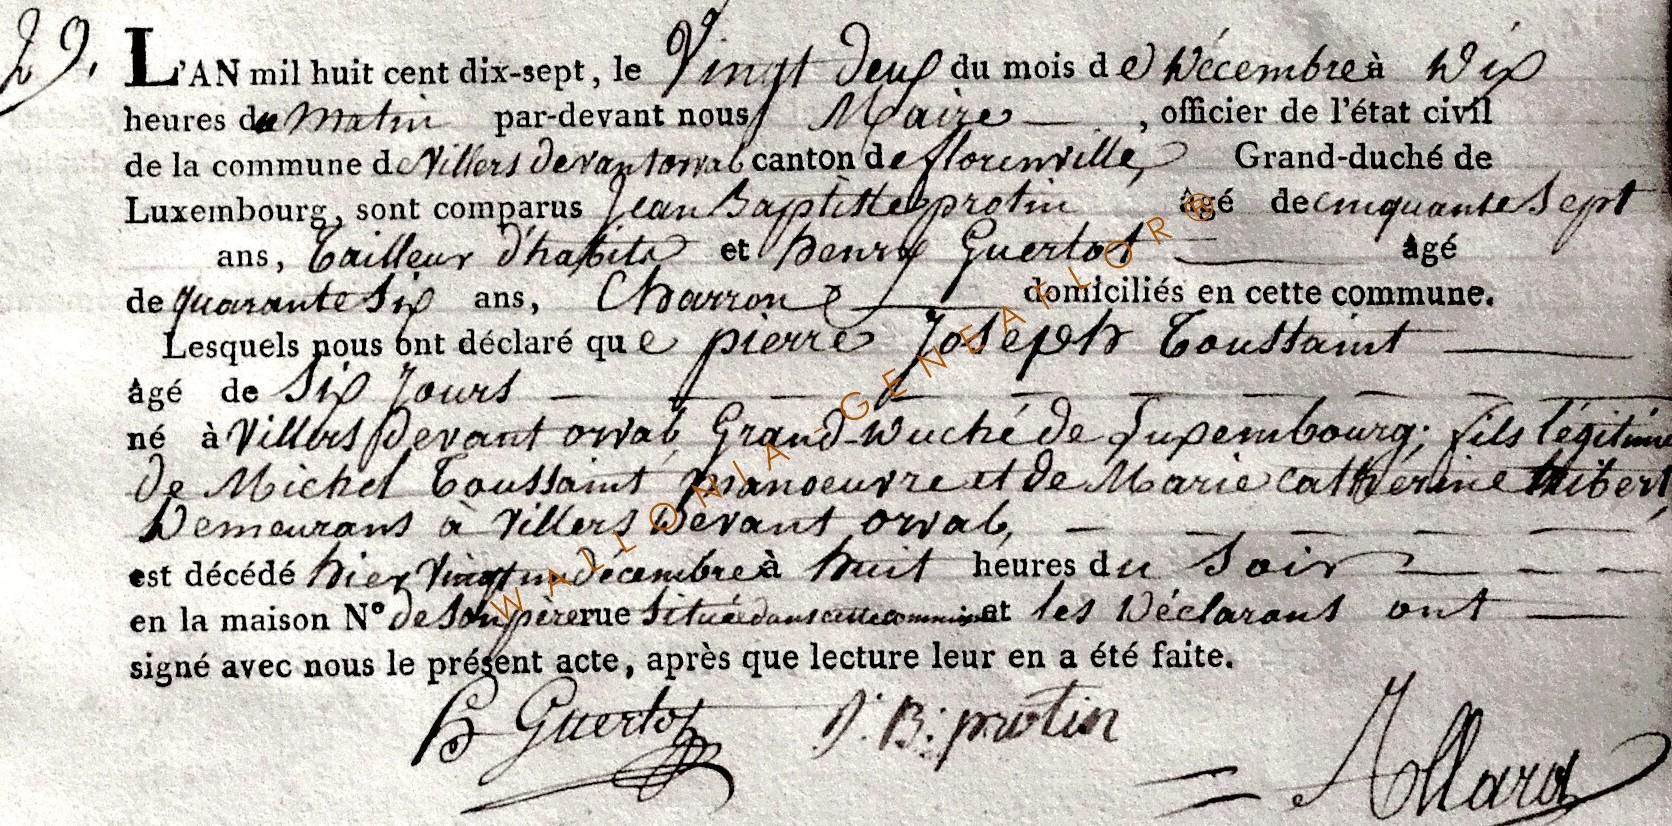 29. L'AN mil huit cent dix-sept, le Vingt deux du mois de Décembre à Dix
heures du Matin par-devant nous Maire , officier de l'état civil
de la commune de Villers devant orval canton de florenville, Grand-duché de
Luxembourg, sont comparus Jean Baptiste protin âgé de cinquante Sept
ans, Tailleur d'habits et henry Guertot âgé
de quarante Six ans, Charron domiciliés en cette commune.
Lesquels nous ont déclaré que pierre Joseph Toussaint
âgé de Six Jours
né à Villers Devant orval, Grand-Duché de Luxembourg; fils légitime
de Michel Toussaint manoeuvre et de Marie catherine hibert
Demeurans à Villers Devant orval,
est décédé hier Vingt un décembre à huit heures du Soir
en la maison N° de Son père rue Située dans cette commune et les Déclarans ont
signé avec nous le présent acte, après que lecture leur en a été faite.
h Guertot J. B: protin Allard
WALLONIA-GENEAFLOR®